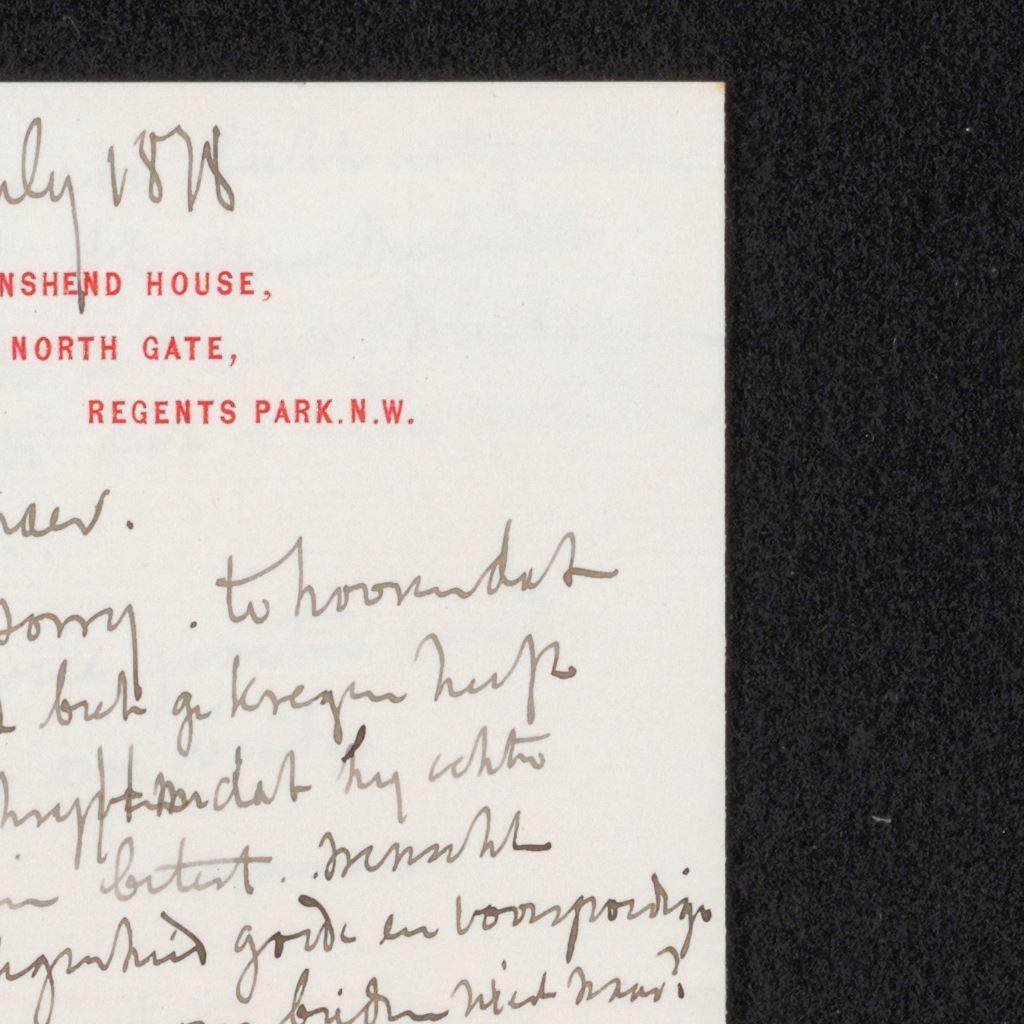 uly 1878
NSHEND HOUSE,
NORTH GATE,
REGENTS PARK.N.W.
sorry. te hooren dat
ge kregen heeft
dat hy echter
betert. wenscht
goede en voorspoedige
beiden niet waar?